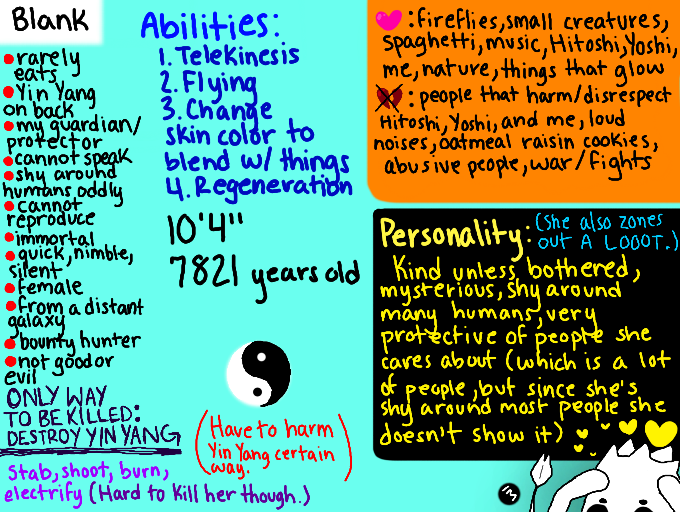 Blank
rarely
eats
Yin Yang
on back
my guardian/
protector
cannot speak
shy around
humans, oddly
cannot
reproduce
immortal
quick, nimble,
silent
female
from a distant
galaxy
bounty hunter
not good or
evil
ONLY WAY
TO BE KILLED:
DESTROY YIN YANG
Stab, shoot, burn,
electrify (Hard to kill her though.)
Abilities:
1. Telekinesis
2. Flying
3. Change
skin color to
blend w/ things
4. Regeneration
10'4"
7821 years old
(Have to harm
Yin Yang certain
way.)
: fireflies, small creatures,
spaghetti, music, Hitoshi, Yoshi,
me, nature, things that glow
: people that harm/disrespect
Hitoshi, Yoshi, and me, loud
noises, oatmeal raisin cookies,
abusive people, war/fights
Personality: (She also zones
out A LOOOT.)
Kind unless bothered,
mysterious, shy around
many humans, very
protective of people she
cares about (which is a lot
of people, but since she's
shy around most people she
doesn't show it)